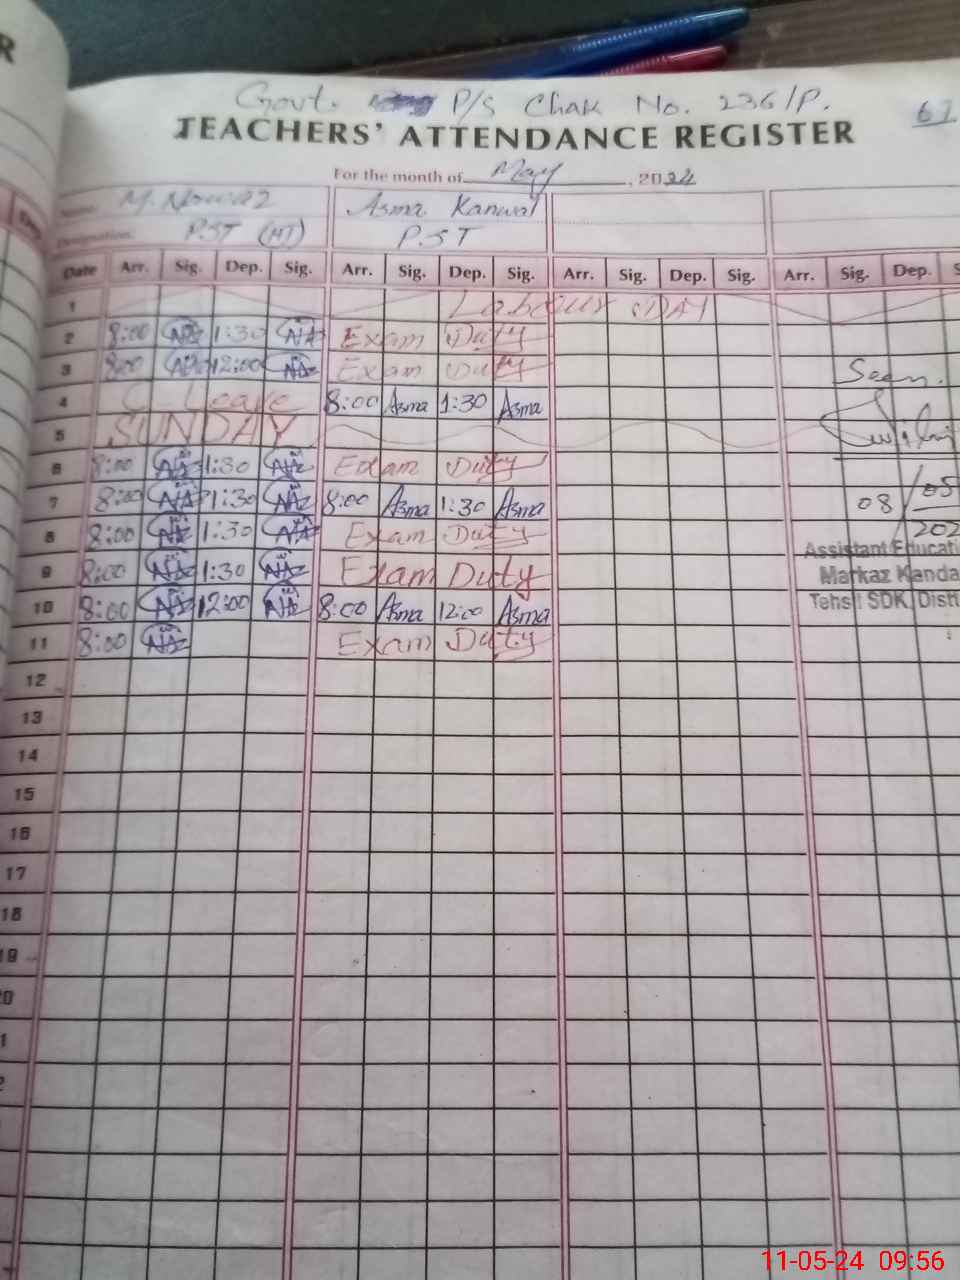 R
Govt. P/S Chak No. 236/P. 61
TEACHERS' ATTENDANCE REGISTER
For the month of May, 2024
Name: M. Nawaz Asma Kanwal
Designation: P.S.T (HT) P.S.T
Date Arr. Sig. Dep. Sig. Arr. Sig. Dep. Sig. Arr. Sig. Dep. Sig. Arr. Sig. Dep. S
1 Labour DAY
2 8:00 1:30 Exam Duty
3 8:00 12:00 Exam Duty Seen.
4 C-Leave 8:00 Asma 1:30 Asma
5 SUNDAY
6 8:00 1:30 Exam Duty
7 8:00 1:30 8:00 Asma 1:30 Asma 08/05
8 8:00 1:30 Exam Duty 202
Assistant Educati
9 8:00 1:30 Exam Duty Markaz Kanda
10 8:00 12:00 8:00 Asma 12:00 Asma Tehsil SDK, Distt
11 8:00 Exam Duty
12
13
14
15
16
17
18
19
20
1
2
11-05-24 09:56